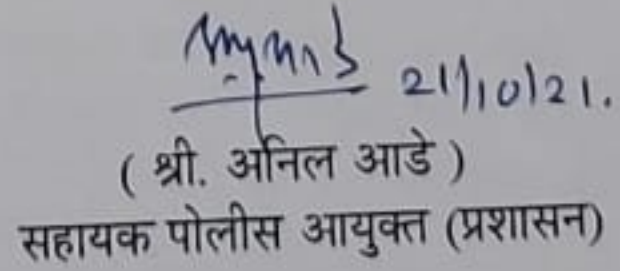 21/10/21.
( श्री. अनिल आडे )
सहायक पोलीस आयुक्त (प्रशासन)